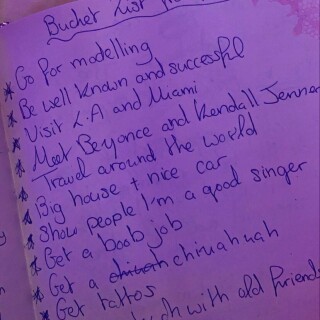 Bucket List
* Go for modelling
* Be well known and successful
* Visit L.A and Miami
* Meet Beyonce and Kendall Jenner
* Travel around the world
* Big house + nice car
* Show people I'm a good singer
* Get a boob job
* Get a chiuahuah
* Get tattos
with old friends